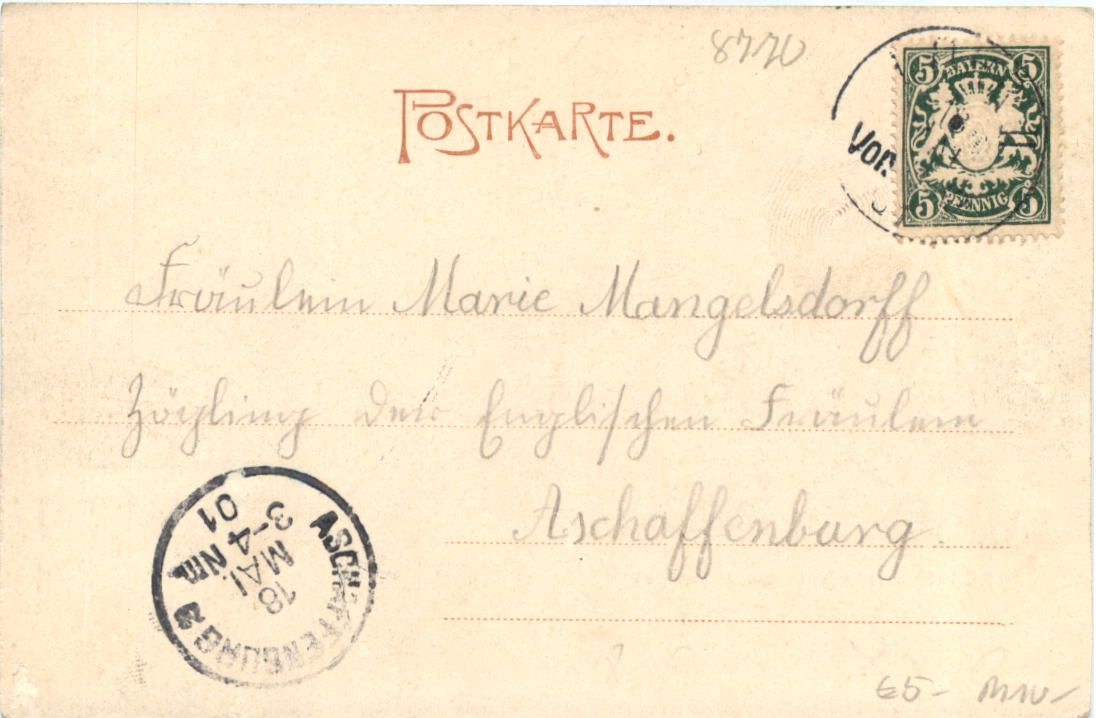 8770
POSTKARTE.
5 BAYERN 5
5 PFENNIG 5
Fräulein Marie Mangelsdorff
Zögling der Englischen Fräulein
Aschaffenburg.
ASCHAFFENBURG 2
18
MAI
3-4 Nm
01